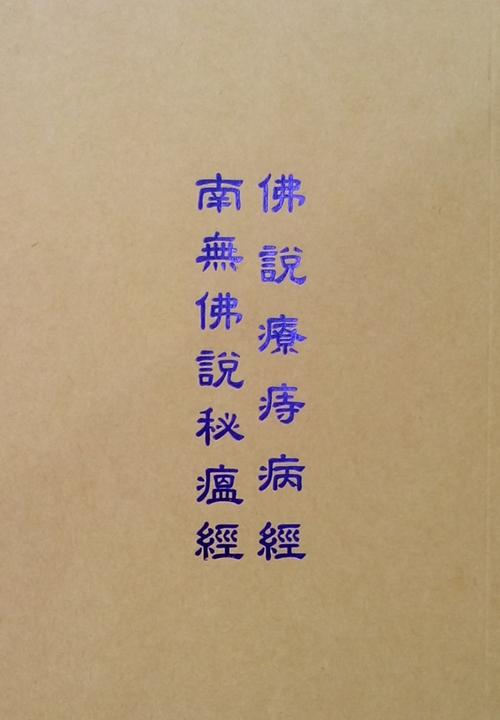 佛說療痔病經
南無佛說秘瘟經